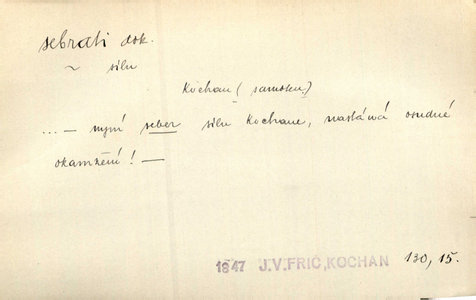 sebrati dok.
~ silu
Kochan (samoten.)
... — nyní seber silu Kochane, nastává osudné
okamžení! —
1847 J.V.FRIČ,KOCHAN 130,15.